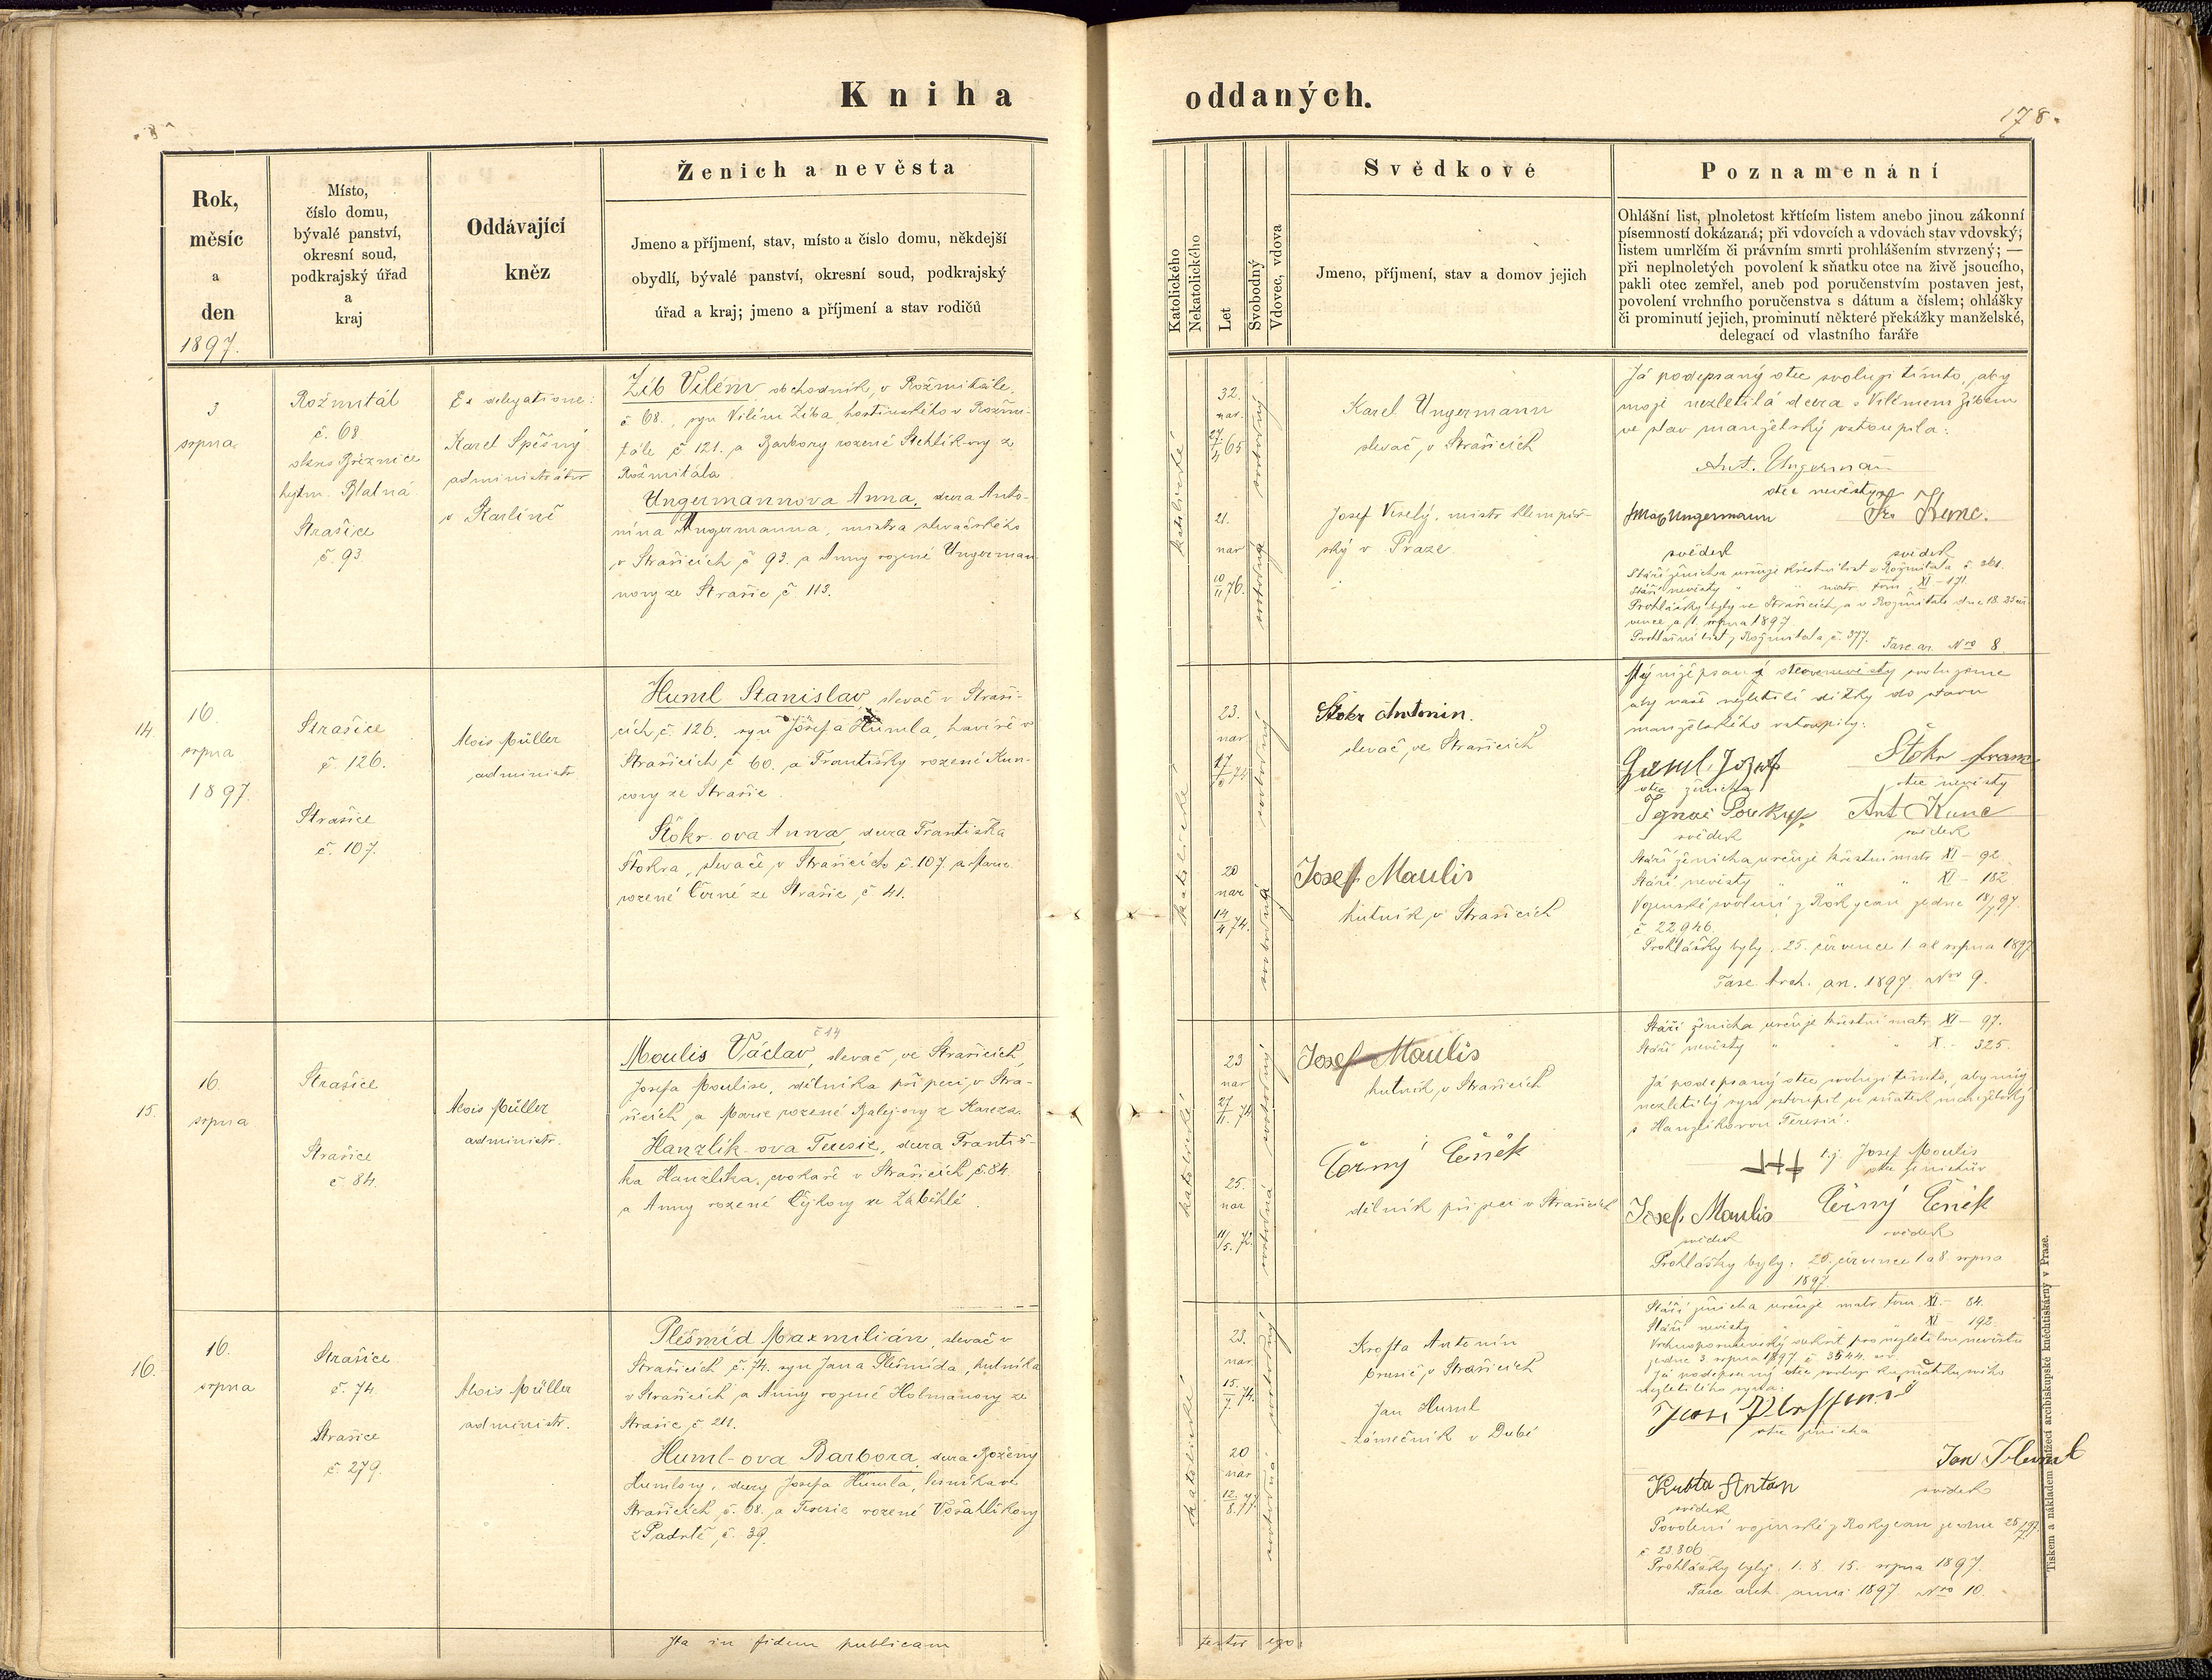 Kniha oddaných.
178.
Rok,
měsíc
a
den
1897.
Místo,
číslo domu,
bývalé panství,
okresní soud,
podkrajský úřad
a
kraj
Oddávající
kněz
Ženich a nevěsta
Jmeno a příjmení, stav, místo a číslo domu, někdejší
obydlí, bývalé panství, okresní soud, podkrajský
úřad a kraj; jmeno a příjmení a stav rodičů
Katolického
Nekatolického
Let
Svobodný
Vdovec, vdova
Svědkové
Jmeno, příjmení, stav a domov jejich
Poznamenání
Ohlášní list, plnoletost křtícím listem anebo jinou zákonní
písemností dokázaná; při vdovcích a vdovách stav vdovský;
listem umrlčím či právním smrti prohlášením stvrzený; —
při neplnoletých povolení k sňatku otce na živě jsoucího,
pakli otec zemřel, aneb pod poručenstvím postaven jest,
povolení vrchního poručenstva s dátum a číslem; ohlášky
či prominutí jejich, prominutí některé překážky manželské,
delegací od vlastního faráře
3
srpna
Rožmitál
č. 68
okres Březnice
hejtm. Blatná
Strašice
č. 93.
Ex delegatione:
Karel Spěšný
administrátor
v Karlíně
Zíb Vilém, obchodník, v Rožmitále
č 68., syn Vilém Zíba, hostinského v Rožmi-
tále č 121. a Barbory rozené Stehlíkovy z
Rožmitála
Ungermannova Anna, dcera Anto-
nína Ungermanna, mistra slevačského
v Strašicích č 93. a Anny rozené Ungerman-
novy ze Strašic č 113.
katolické
32.
nar.
27/4 65
svobodný
21.
nar
10/11 76.
svobodná
Karel Ungermann
slevač v Strašicích
Josef Veselý, mistr klempíř-
ský v Praze
Já podepsaný otec svoluji tímto, aby
moje nezletilá dcera s Vilémem Zíbem
ve stav manželský vstoupila:
Ant. Ungerman
otec nevěsty
Ungermann Kunc.
svědek svědek
Stáří ženicha určuje křestní list z Rožmitála č. 361.
Stáří nevěsty " matr. tom. XI - 171.
Prohlášky byly ve Strašicích a v Rožmitále dne 18. 25 čer-
vence a 1. srpna 1897
Prohlašní list z Rožmitála č. 377. Fasc. ar. Nro 8.
14
16.
srpna
1897.
Strašice
č. 126.
Strašice
č. 107.
Alois Müller
administr.
Huml Stanislav, slevač v Straši-
cích č. 126, syn Josefa Humla, havíře v
Strašicích č 60. a Františky rozené Kun-
covy ze Strašic.
Štokr-ova Anna, dcera Františka
Štokra, slevače v Strašicích č. 107. a Marie
rozené Černé ze Strašic č 41.
katolické
23.
nar
svobodný
20
nar
14/4 74.
svobodná
Štokr Antonin.
slevač ve Strašicích
Josef Maulis
hutník v Strašicích
My nížepsaný otcové nevěsty svolujeme
aby naše nezletilé dítky do stavu
manželského vstoupily:
Huml Jozef Štokr Franc
otec ženicha otec nevěsty
Ignac Ant Kunc
svědek svědek
Stáří ženicha určuje křestní matr XI - 92.
Stáří nevěsty " " " XI - 182
Vojenské svolení z Rokycan ze dne 18/7 97.
č 22946.
Prohlášky byly: 25. července 1. a 8. srpna 1897
Fasc. Arch. an. 1897. Nro 9.
15.
16.
srpna
Strašice
Strašice
č 84.
Alois Müller
administr.
č 14
Moulis Václav, slevač ve Strašicích,
Josefa Moulise, dělníka při peci v Stra-
šicích a Marie rozené Balej-ovy z Kareza.
Hanzlík-ova Teresie, dcera Františ-
ka Hanzlíka, cvokaře v Strašicích č. 84.
a Anny rozené Čejkovy ze Záběhlé.
katolické
23
nar
27/11. 74
svobodný
25.
nar
11/5. 72.
svobodná
Josef Maulis
hutník v Strašicích
Černý Čeněk
dělník při peci v Strašicích
Stáří ženicha určuje křestní matr. XI - 97.
Stáří nevěsty " " " X. - 325.
Já podepsaný otec svoluji tímto, aby můj
nezletilý syn vstoupil ve sňatek manželský
s Hanzlíkovou Teresií.
††† Josef Moulis
otec ženichův
Josef Maulis Černý Čeněk
svědek svědek
Prohlášky byly: 25. července 1. a 8. srpna
1897.
16.
16.
srpna
Strašice
č. 74.
Strašice
č. 279.
Alois Müller
administr.
Plešmíd Maxmilián, slevač v
Strašicích č. 74. syn Jana Plešmída, hutníka
v Strašicích a Anny rozené Holmanovy ze
Strašic č. 211.
Huml-ova Barbora, dcera Boženy
Humlovy, dcery Josefa Humla, lesníka ve
Strašicích č. 68. a Teresie rozené Vošahlíkovy
z Padrtě č. 39.
katolické
23.
nar
15./7. 74.
svobodný
20
nar
12./8. 77
svobodná
Krofta Antonín
brusič v Strašicích
Jan Huml
zámečník v Dubí
Stáří ženicha určuje matr. tom. XI. - 84.
Stáří nevěsty " " XI - 192
Vrchnoporučenský dekret pro nezletilou nevěstu
ze dne 3. srpna 1897 č. 3544.
Já podepsaný otec svoluji ku sňatku mého
nezletilého syna:
otec ženicha
Jan Huml
Antan
svědek svědek
Povolení vojenské z Rokycan ze dne 25/7 97.
č 23.806
Prohlášky byly: 1. 8. 15. srpna 1897.
Fasc. arch. anni 1897 Nro 10.
Ita in fidem publicam
testor ego:
Tiskem a nákladem knížecí arcibiskupské knihtiskárny v Praze.